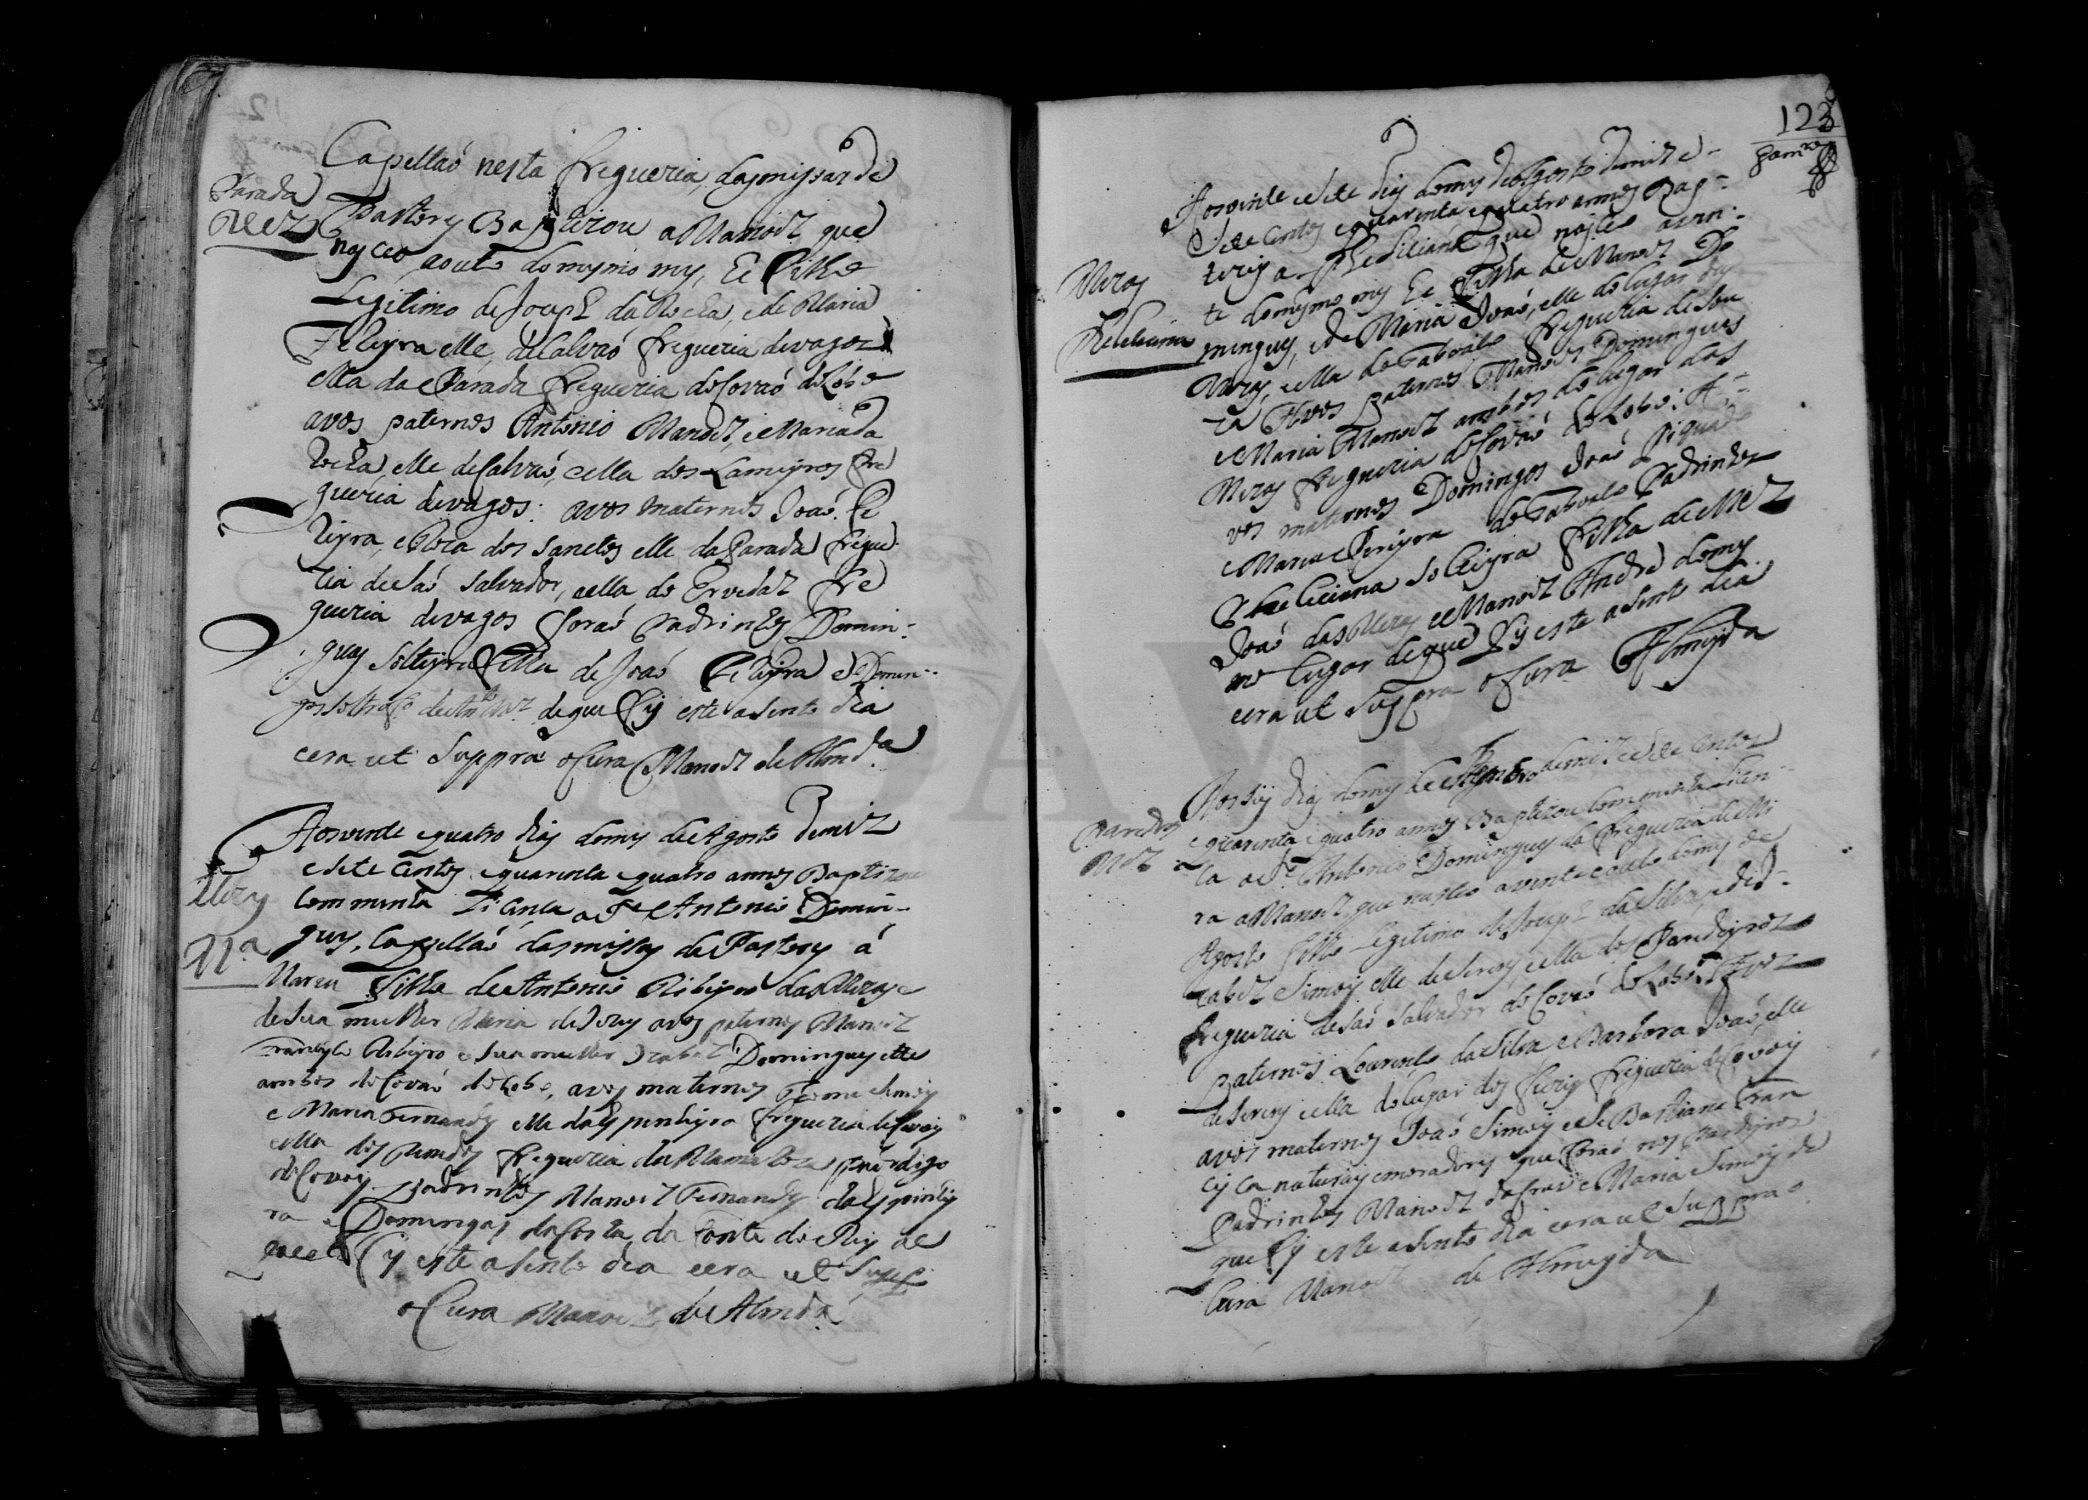 Capellaó nesta freguezia, das missas de
Parada
Mel
Pastory Baptizou a Manoel que
nasceo a outo do mesmo mes, he filho
Legitimo de Joseph da Rocha, e de Maria
Ferreyra elle de Calvaó freguezia de vagos
ella da Parada freguezia de Covaó do Lobo
avos paternos Antonio Manoel e Maria da
Rocha elle de Calvaó, e ella dos Lameyros fre
guezia de vagos: avos maternos Joaó Fe
rreyra, e Roza dos Sanctos elle da Parada fregue
zia de Saó Salvador, e ella do Ervedal fre
guezia de vagos foraó Padrinhos Domin-
gas solteyra filha de Joaó Ferreyra e Domin-
gos de que fis este asento dia
e era ut suppra o Cura Manoel de Almda
Aos vinte e quatro dias do mes de Agosto de mil
e sete centos e quarenta e quatro annos Baptizou
Meza
Ma
com minha Licença o Pe Antonio Domin-
gues, Capellaó das missas de Pastory á
Maria filha de Antonio Ribeyro das Mezas e
de sua mulher Maria de Jesus avos paternos Manoel
Ribeyro e sua mulher Izabel Domingues elle
ambos de Covaó do Lobo, avos maternos Thome Simois
e Maria Fernandes elle da Espinheyra freguezia de Covois
ella dos freguezia da Mamaroza
de Covois. Padrinhos Manoel Fernandes da Espinhey
ra e Domingas da Costa da Fonte do Rey de
que fis este asento dia e era ut supr
o Cura Manoel de Almda
123
Aos vinte e sete dias do mes de Agosto de mil e
sete centos e quarenta e quatro annos Bap-
tizey a Pheliciana que nasceo a vin-
te do mesmo mes he filha de Manoel Do
Mezas
Pheleciana
mingues, e de Maria Joaó, elle do lugar das
Mezas, e ella do Taboaço freguezia de Sou
za Avos paternos Manoel Domingues
e Maria Manoel ambos do lugar das
Mezas freguezia de Covaó do Lobo: A-
vos maternos Domingos Joaó
e Maria Pereyra do Taboaço Padrinhos
Pheliciana solteyra filha de Mel
Joaó das Mezas e Manoel Andre do mes
mo lugar de que fis este asento dia
e era ut suppra o Cura Almeyda
Aos seis dias do mes de Setembro de mil e sete centos
Mel
e quarenta e quatro annos Baptizou com minha Licen-
ca o Pe Antonio Domingues da freguezia de Mi
ra a Manoel que nasceo a vinte e outo do mes de
Agosto filho Legitimo de Joseph da Silva e de I-
zabel Simois elle de Serens e ella dos Pardeyros
freguezia de Saó Salvador de Covaó do Lobo Avos
Paternos Lourenco da Silva e Barbora Joaó, elle
de Serens e ella do lugar dos freguezia de Covois
avos maternos Joaó Simois e Se Bastiana Fran
cisca naturais e moradores que foraó nos Pardeyros
Padrinhos Manoel da Crus e Maria Simois de
que fis este asento dia e era ut suppra o
Cura Manoel de Almeyda